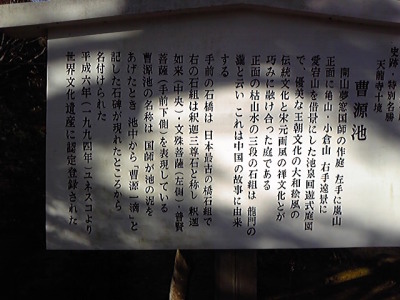 史跡・特別名勝
天龍寺十境
曹源池
開山夢窓国師の作庭 左手に嵐山
正面に亀山・小倉山 右手遠景に
愛宕山を借景にした池泉回遊式庭園
で、優美な王朝文化の大和絵風の
伝統文化と宋元画風の禅文化とが
巧みに融け合った庭である
正面の枯山水の三段の石組は 龍門の
瀧と云い これは中国の故事に由来
する
手前の石橋は 日本最古の橋石組で
右の石組は釈迦三尊石と称し 釈迦
如来(中央)・文殊菩薩(左側)・普賢
菩薩(手前下側)を表現している
曹源池の名称は 国師が池の泥を
あげたとき 池中から「曹源一滴」と
記した石碑が現れたところから
名付けられた
平成六年(一九九四年)ユネスコより
世界文化遺産に認定登録された